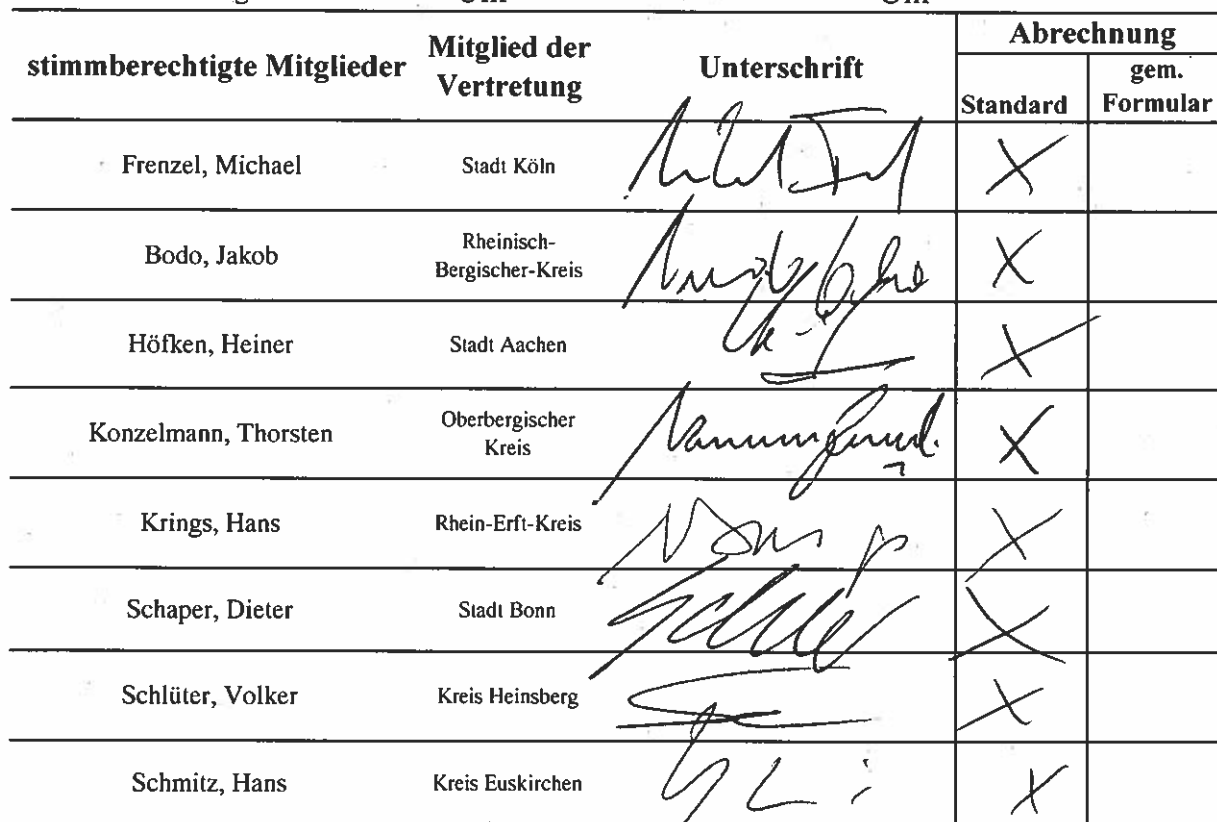 Abrechnung
stimmberechtigte Mitglieder Mitglied der Vertretung Unterschrift Standard gem. Formular
Frenzel, Michael Stadt Köln X
Bodo, Jakob Rheinisch-Bergischer-Kreis X
Höfken, Heiner Stadt Aachen X
Konzelmann, Thorsten Oberbergischer Kreis X
Krings, Hans Rhein-Erft-Kreis X
Schaper, Dieter Stadt Bonn X
Schlüter, Volker Kreis Heinsberg X
Schmitz, Hans Kreis Euskirchen X